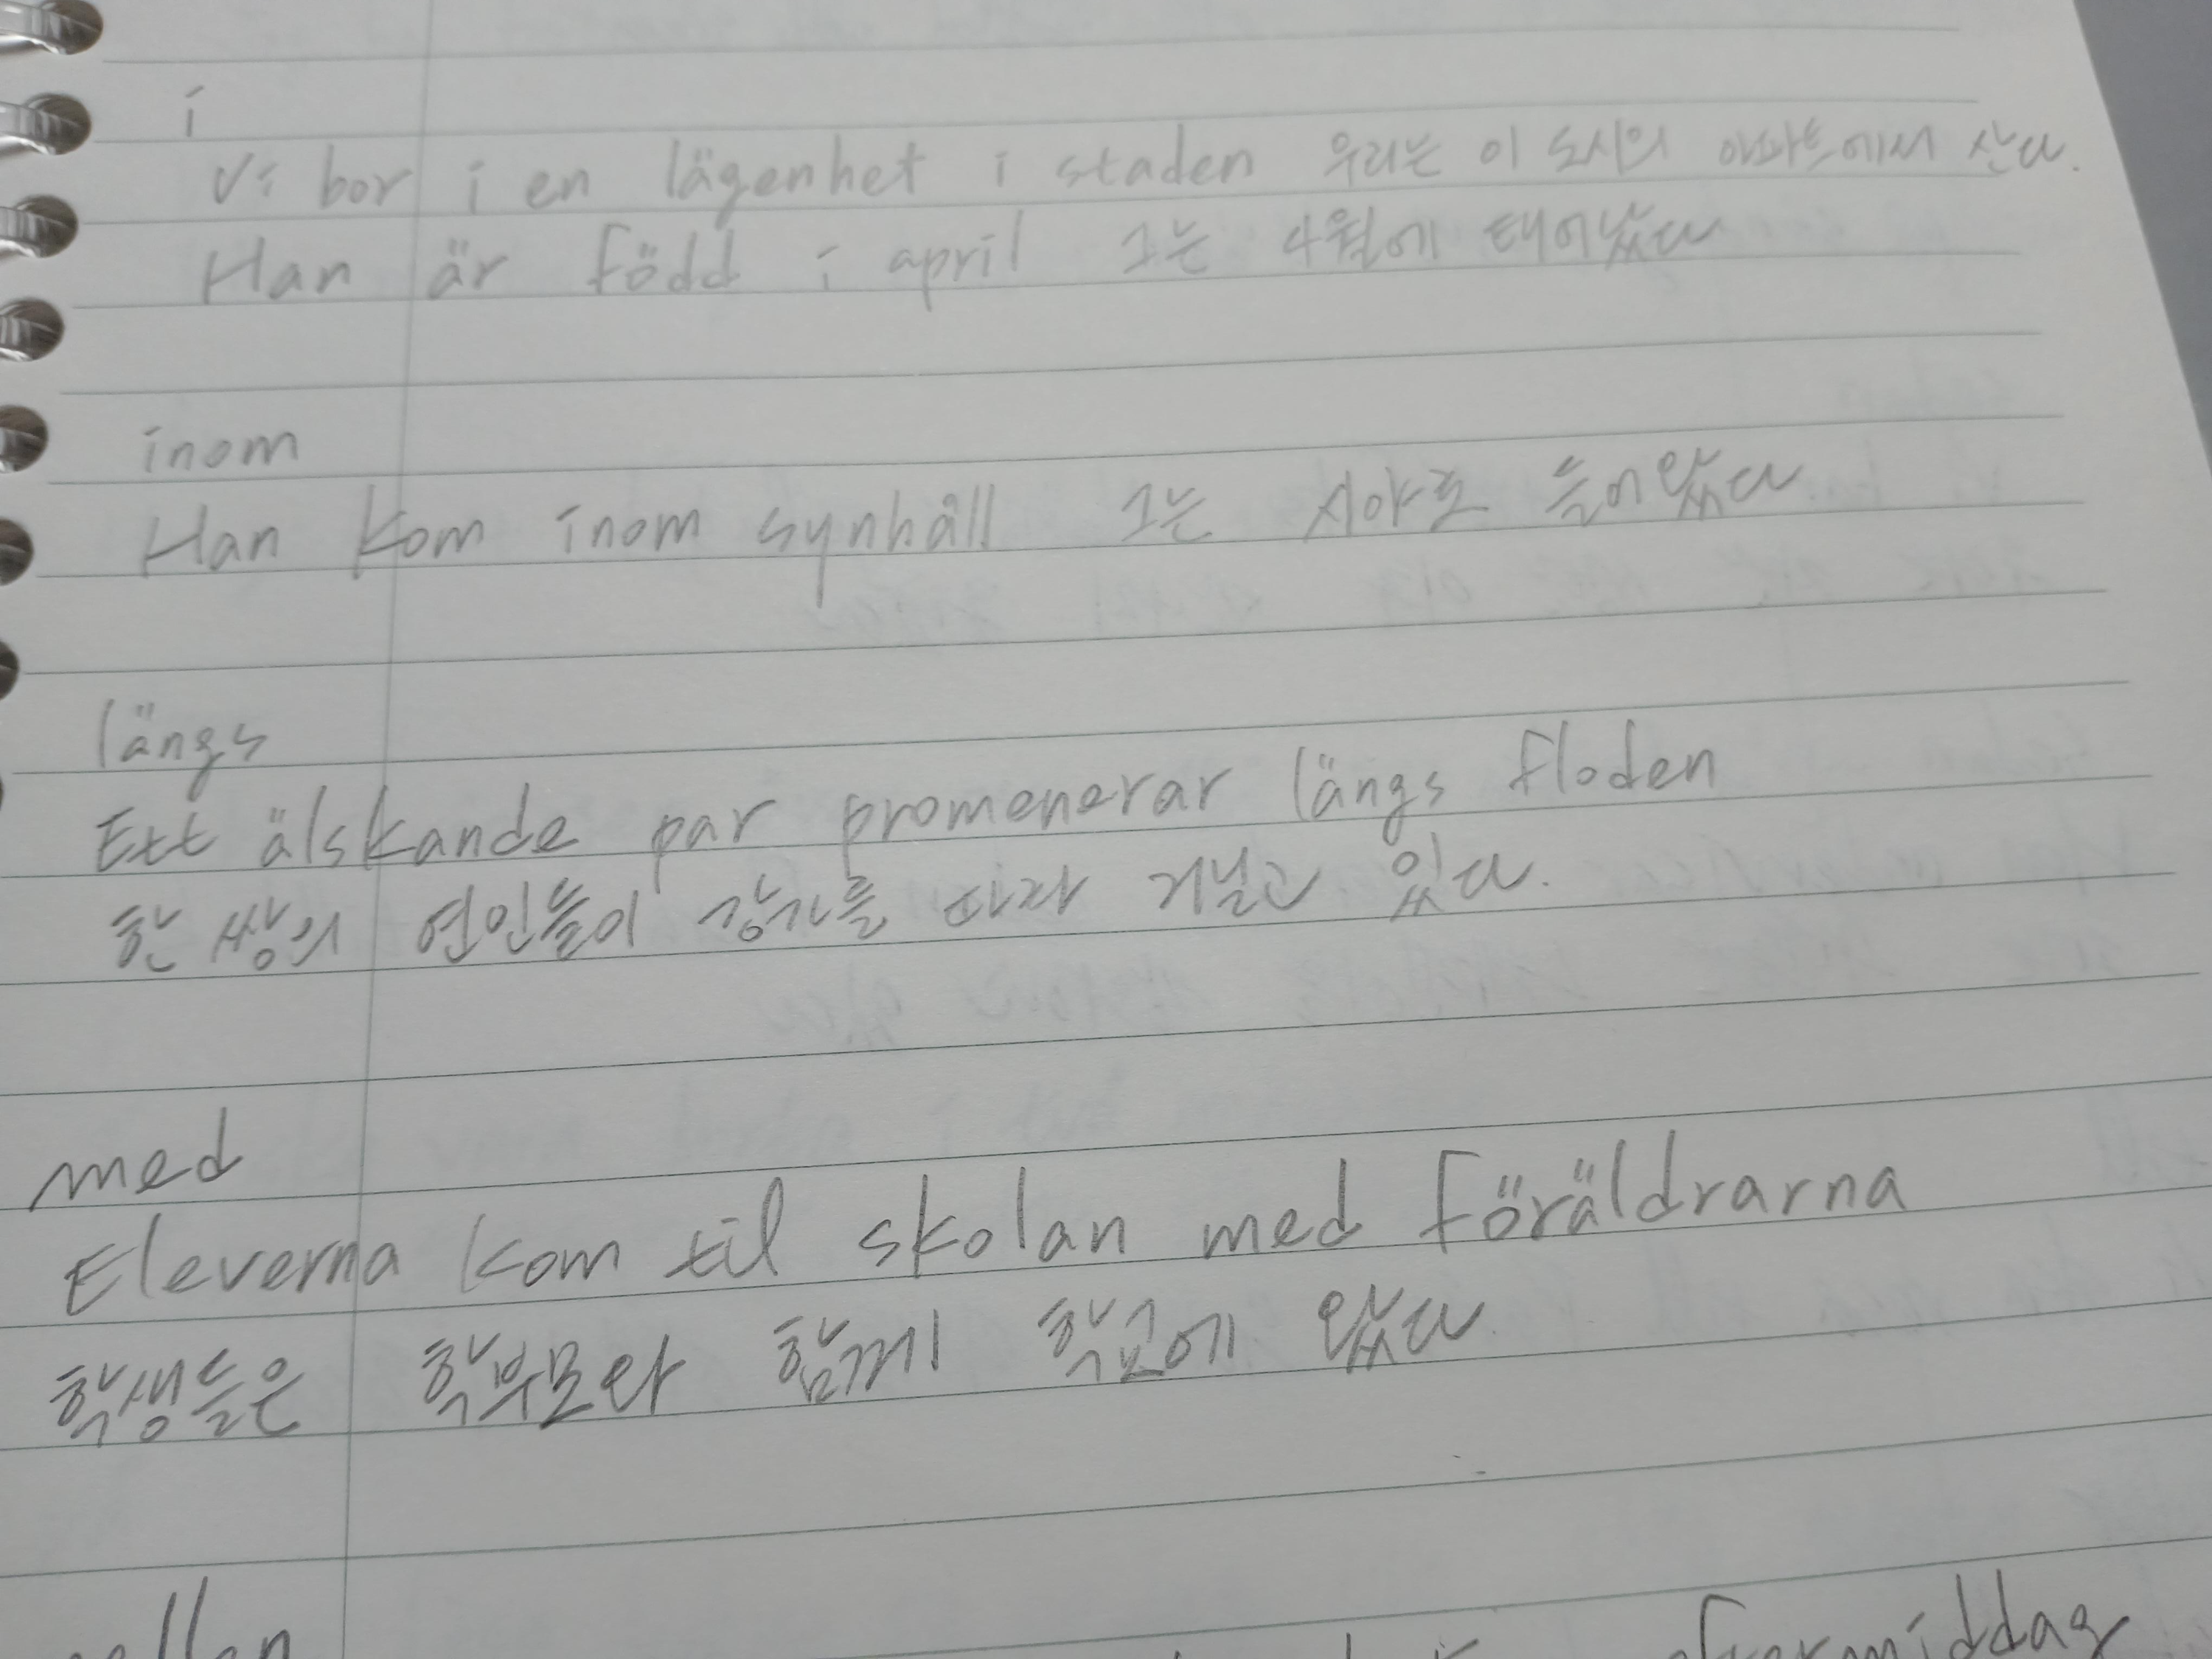 i
Vi bor i en lägenhet i staden 우리는 이 도시의 아파트에서 산다.
Han är född i april 그는 4월에 태어났다
inom
Han kom inom synhåll 그는 시야로 들어왔다
längs
Ett älskande par promenerar längs floden
한 쌍의 연인들이 강가를 따라 거닐고 있다.
med
Eleverna kom till skolan med föräldrarna
학생들은 학부모와 함께 학교에 왔다